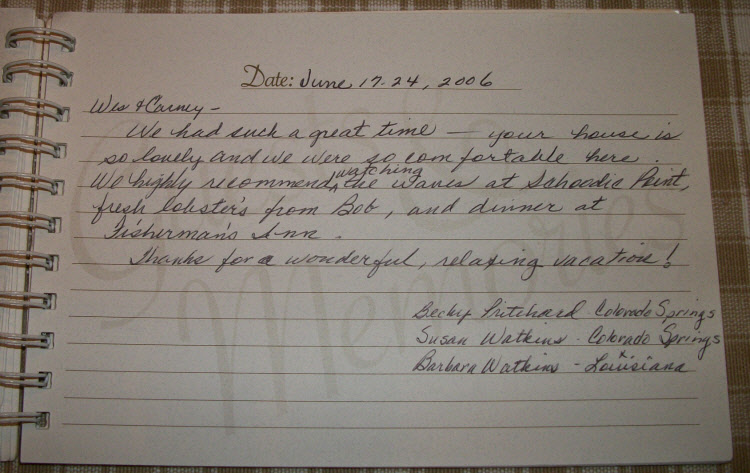 Date: June 17-24, 2006
Wes & Carney -
We had such a great time — your house is
so lovely and we were so comfortable here.
We highly recommend watching the waves at Schoodic Point,
fresh lobster's from Bob, and dinner at
Fisherman's Inn.
Thanks for a wonderful, relaxing vacation!
Becky Pritchard - Colorado Springs
Susan Watkins - Colorado Springs
Barbara Watkins - Louisiana
Memories